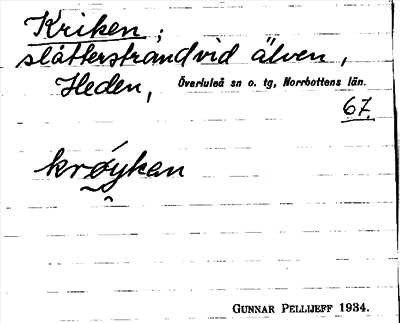 Kriken;
slåtterstrand vid älven,
Heden, Överluleå sn o. tg, Norrbottens län.
67.
krøyken
GUNNAR PELLIJEFF 1934.